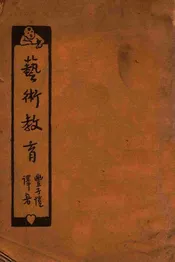 藝術教育
豐子愷
譯著